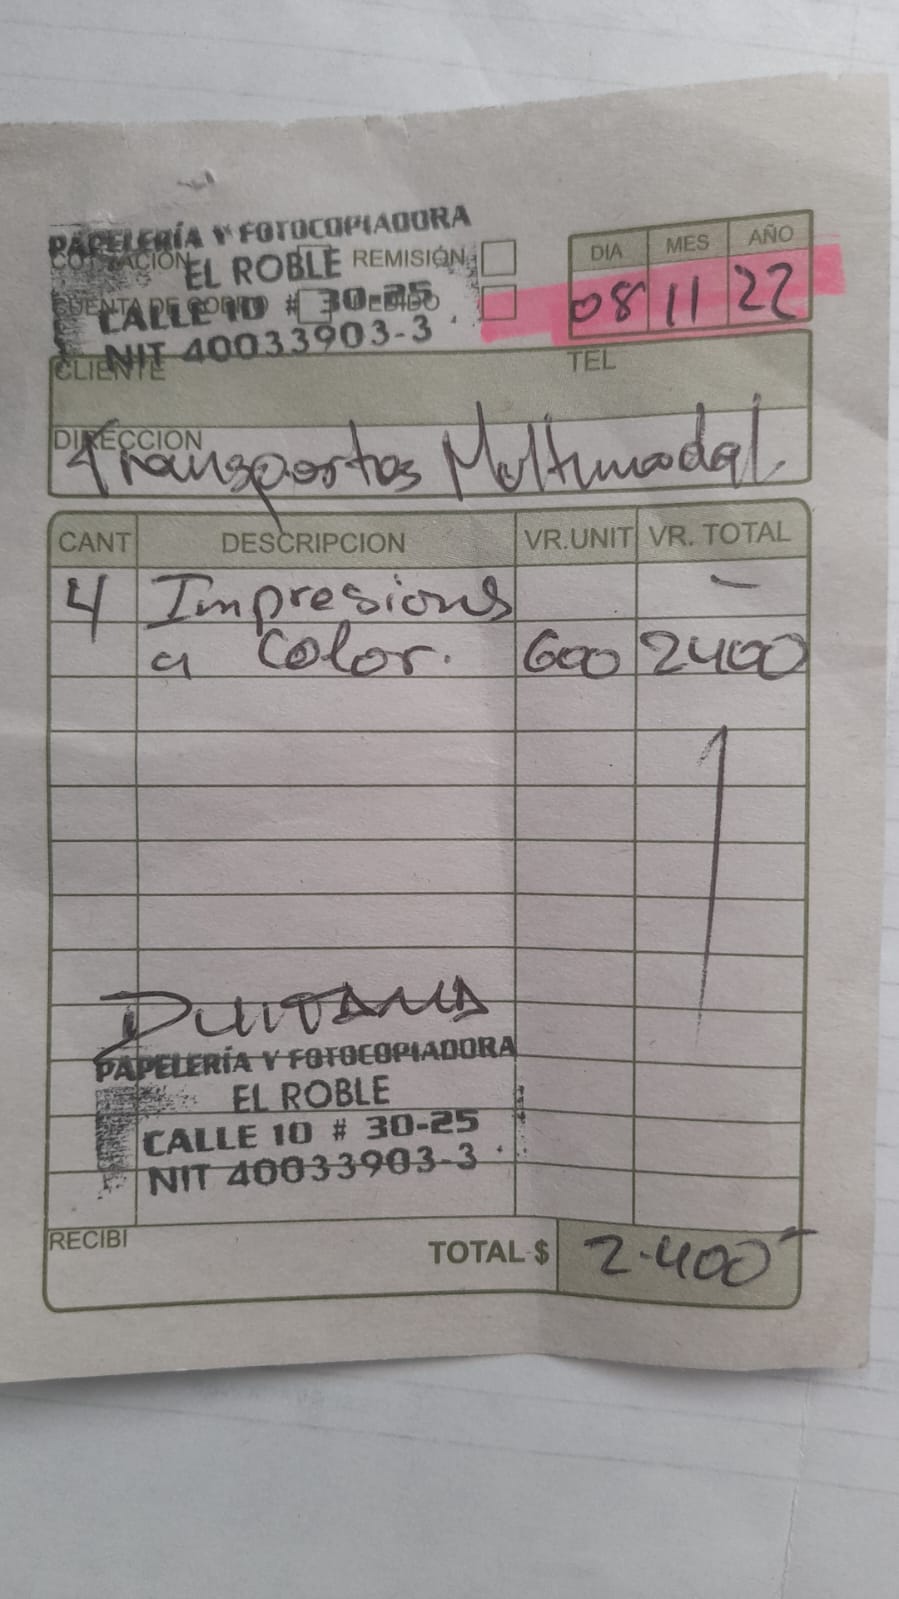 PAPELERÍA Y FOTOCOPIADORA
COTIZACIÓN REMISIÓN
EL ROBLE
CUENTA DE COBRO PEDIDO
CALLE 10 # 30-25
NIT 40033903-3
DIA MES AÑO
08 11 22
CLIENTE TEL
DIRECCION
Transportes Multimodal.
CANT DESCRIPCION VR.UNIT VR. TOTAL
4 Impresions -
a Color. 600 2400
DUITAMA
PAPELERÍA Y FOTOCOPIADORA
EL ROBLE
CALLE 10 # 30-25
NIT 40033903-3
RECIBI TOTAL $ 2.400-